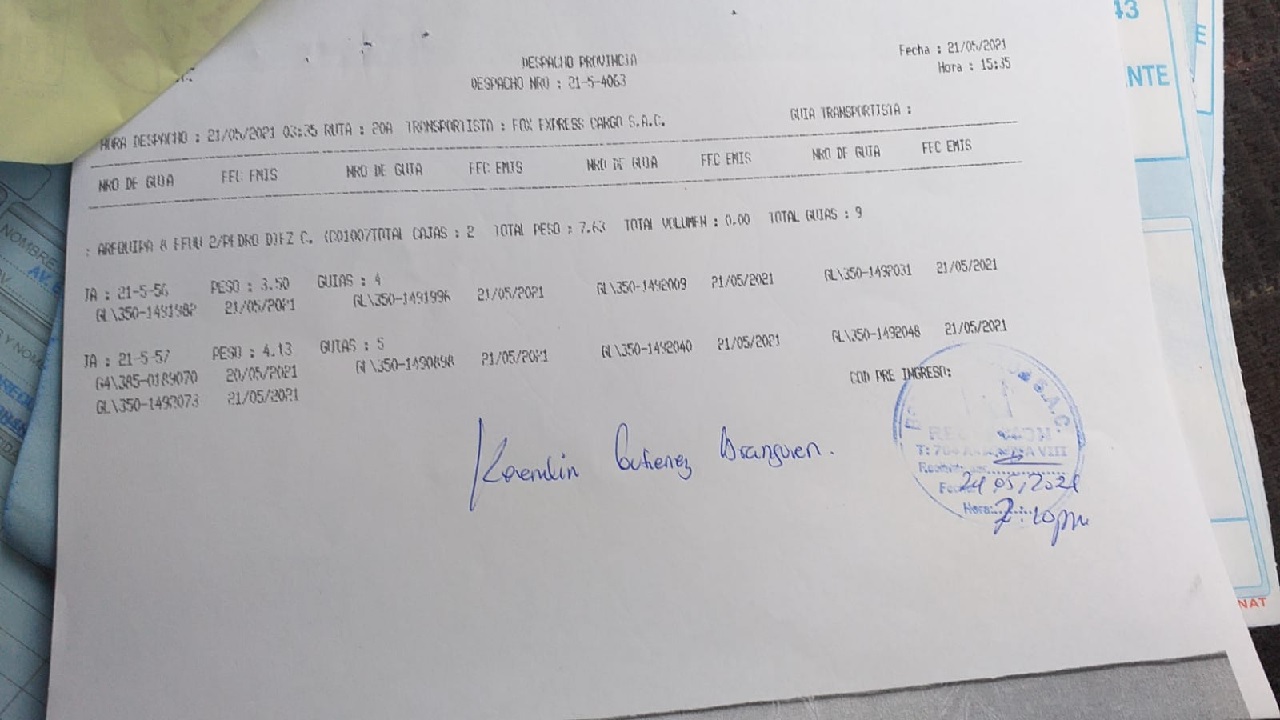 43
NTE
DESPACHO PROVINCIA
DESPACHO NRO : 21-5-4063
Fecha : 21/05/2021
Hora : 15:35
HORA DESPACHO : 21/05/2021 03:35 RUTA : 20A TRANSPORTISTA : FOX EXPRESS CARGO S.A.C. GUIA TRANSPORTISTA :
NRO DE GUIA FEC EMIS NRO DE GUIA FEC EMIS NRO DE GUIA FEC EMIS NRO DE GUIA FEC EMIS
: AREQUIPA 8 EFUU 2/PEDRO DIEZ C. TOTAL CAJAS : 2 TOTAL PESO : 7.63 TOTAL VOLUMEN : 0.00 TOTAL GUIAS : 9
JA : 21-5-56 PESO : 3.50 GUIAS : 4
GL\350-1491982 21/05/2021 GL\350-1491996 21/05/2021 GL\350-1492009 21/05/2021 GL\350-1492031 21/05/2021
JA : 21-5-57 PESO : 4.13 GUIAS : 5
G4\385-0189070 20/05/2021 GL\350-1490898 21/05/2021 GL\350-1492040 21/05/2021 GL\350-1492048 21/05/2021
GL\350-1492073 21/05/2021
CON PRE INGRESO:
Gutierrez
S.A.C.
24 05/2021
Hora:
7:10pm
NAT
NOMBRE
AV.